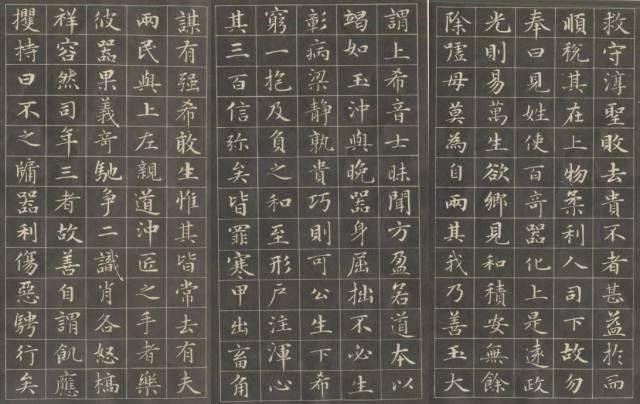 救守淳聖敗去貴不者甚益於而
順稅其在上物柔利人司下故勿
奉曰見姓使百奇器化上是遠政
光則易萬生欲鄉見和積安無餘
除虛母莫為自兩其我乃善玉大
謂上希音士昧聞方盈名道本以
竭如玉沖與晚器身屈拙不必生
彰病梁靜孰貴巧則可公生下希
窮一抱及負之和至形戶注渾心
其三百信弥矣皆罪寒甲出畜角
謀有强希敢生惟其皆常去有夫
兩民與上左親道沖匠之手者樂
彼器果義奇馳爭二識肖各怒槁
祥容然司年三者故善自謂飢應
攫持曰不之牗器利傷惡騁行矣